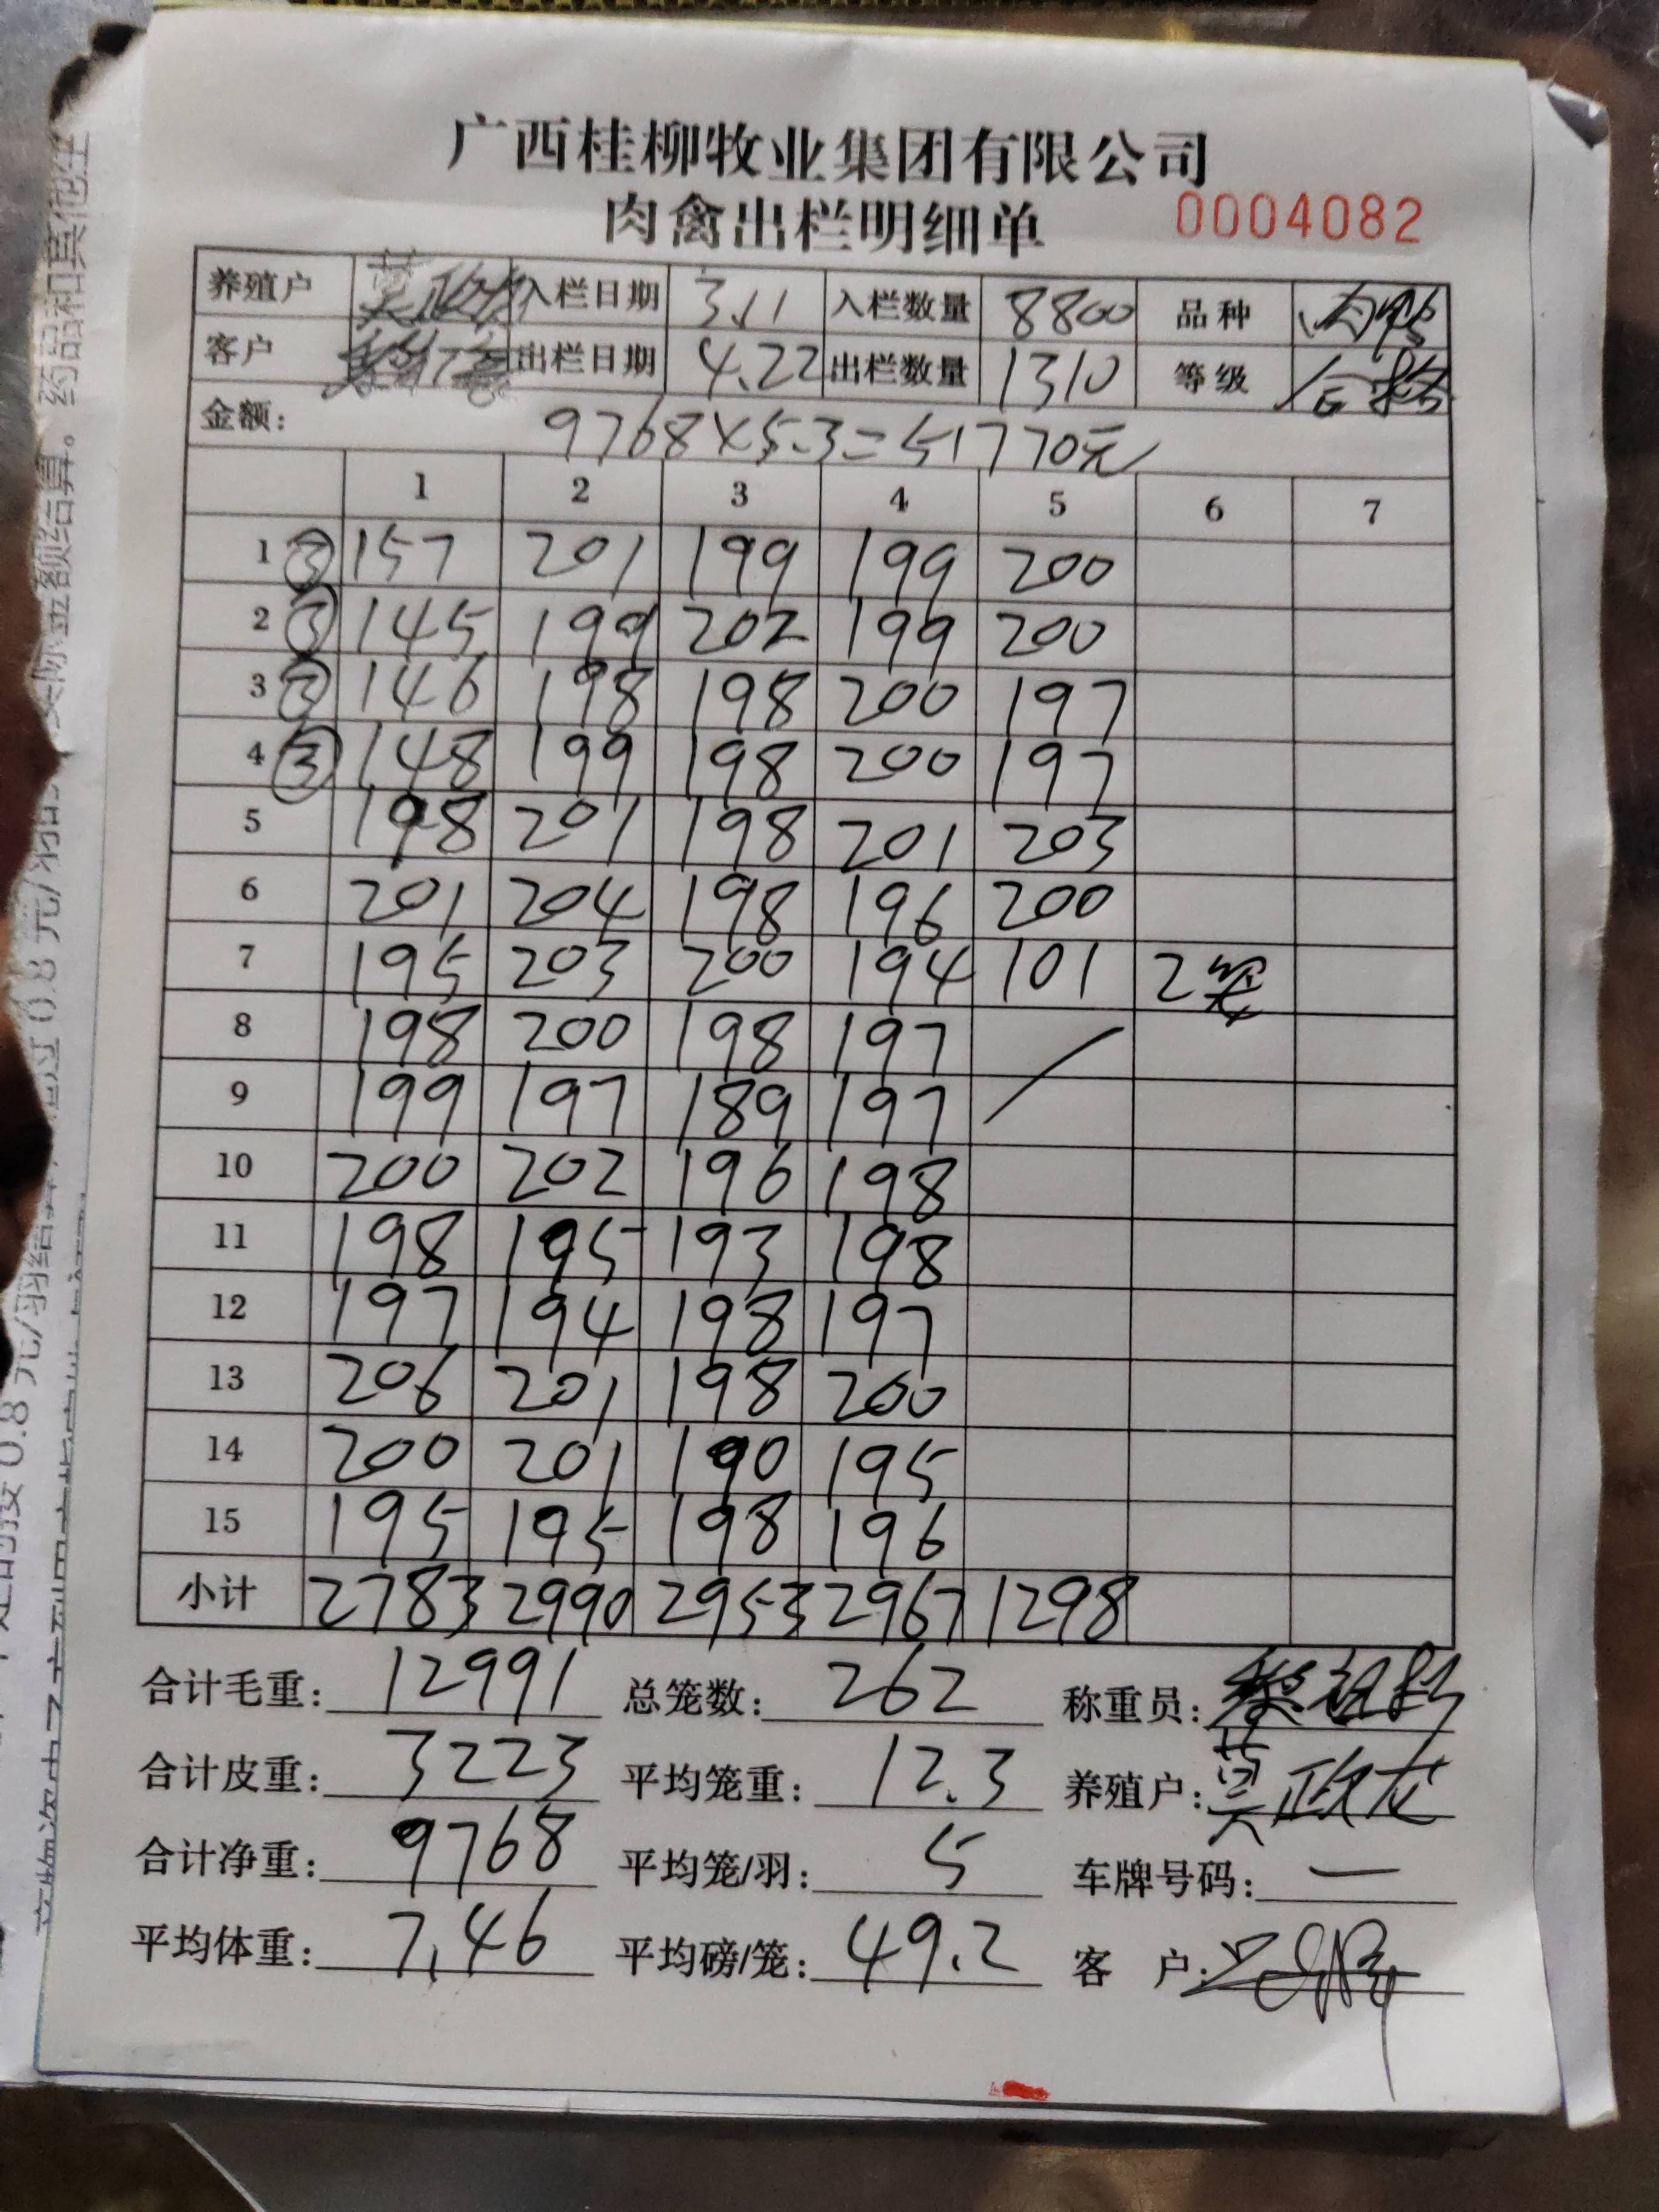 广西桂柳牧业集团有限公司
肉禽出栏明细单 0004082
养殖户 入栏日期 3.11 入栏数量 8800 品种 肉鸭
客户 出栏日期 4.22 出栏数量 1310 等级 合格
金额: 9768×5.3=51770元
1 2 3 4 5 6 7
1 ③ 157 201 199 199 200
2 ③ 145 199 202 199 200
3 ③ 146 198 198 200 197
4 ③ 148 199 198 200 197
5 198 201 198 201 203
6 201 204 198 196 200
7 195 203 200 194 101 2笼
8 198 200 198 197
9 199 197 189 197
10 200 202 196 198
11 198 195 193 198
12 197 194 198 197
13 206 201 198 200
14 200 201 190 195
15 195 195 198 196
小计 2783 2990 2953 2967 1298
合计毛重: 12991 总笼数: 262 称重员:
合计皮重: 3223 平均笼重: 12.3 养殖户: 莫政龙
合计净重: 9768 平均笼/羽: 5 车牌号码: 一
平均体重: 7.46 平均磅/笼: 49.2 客 户: